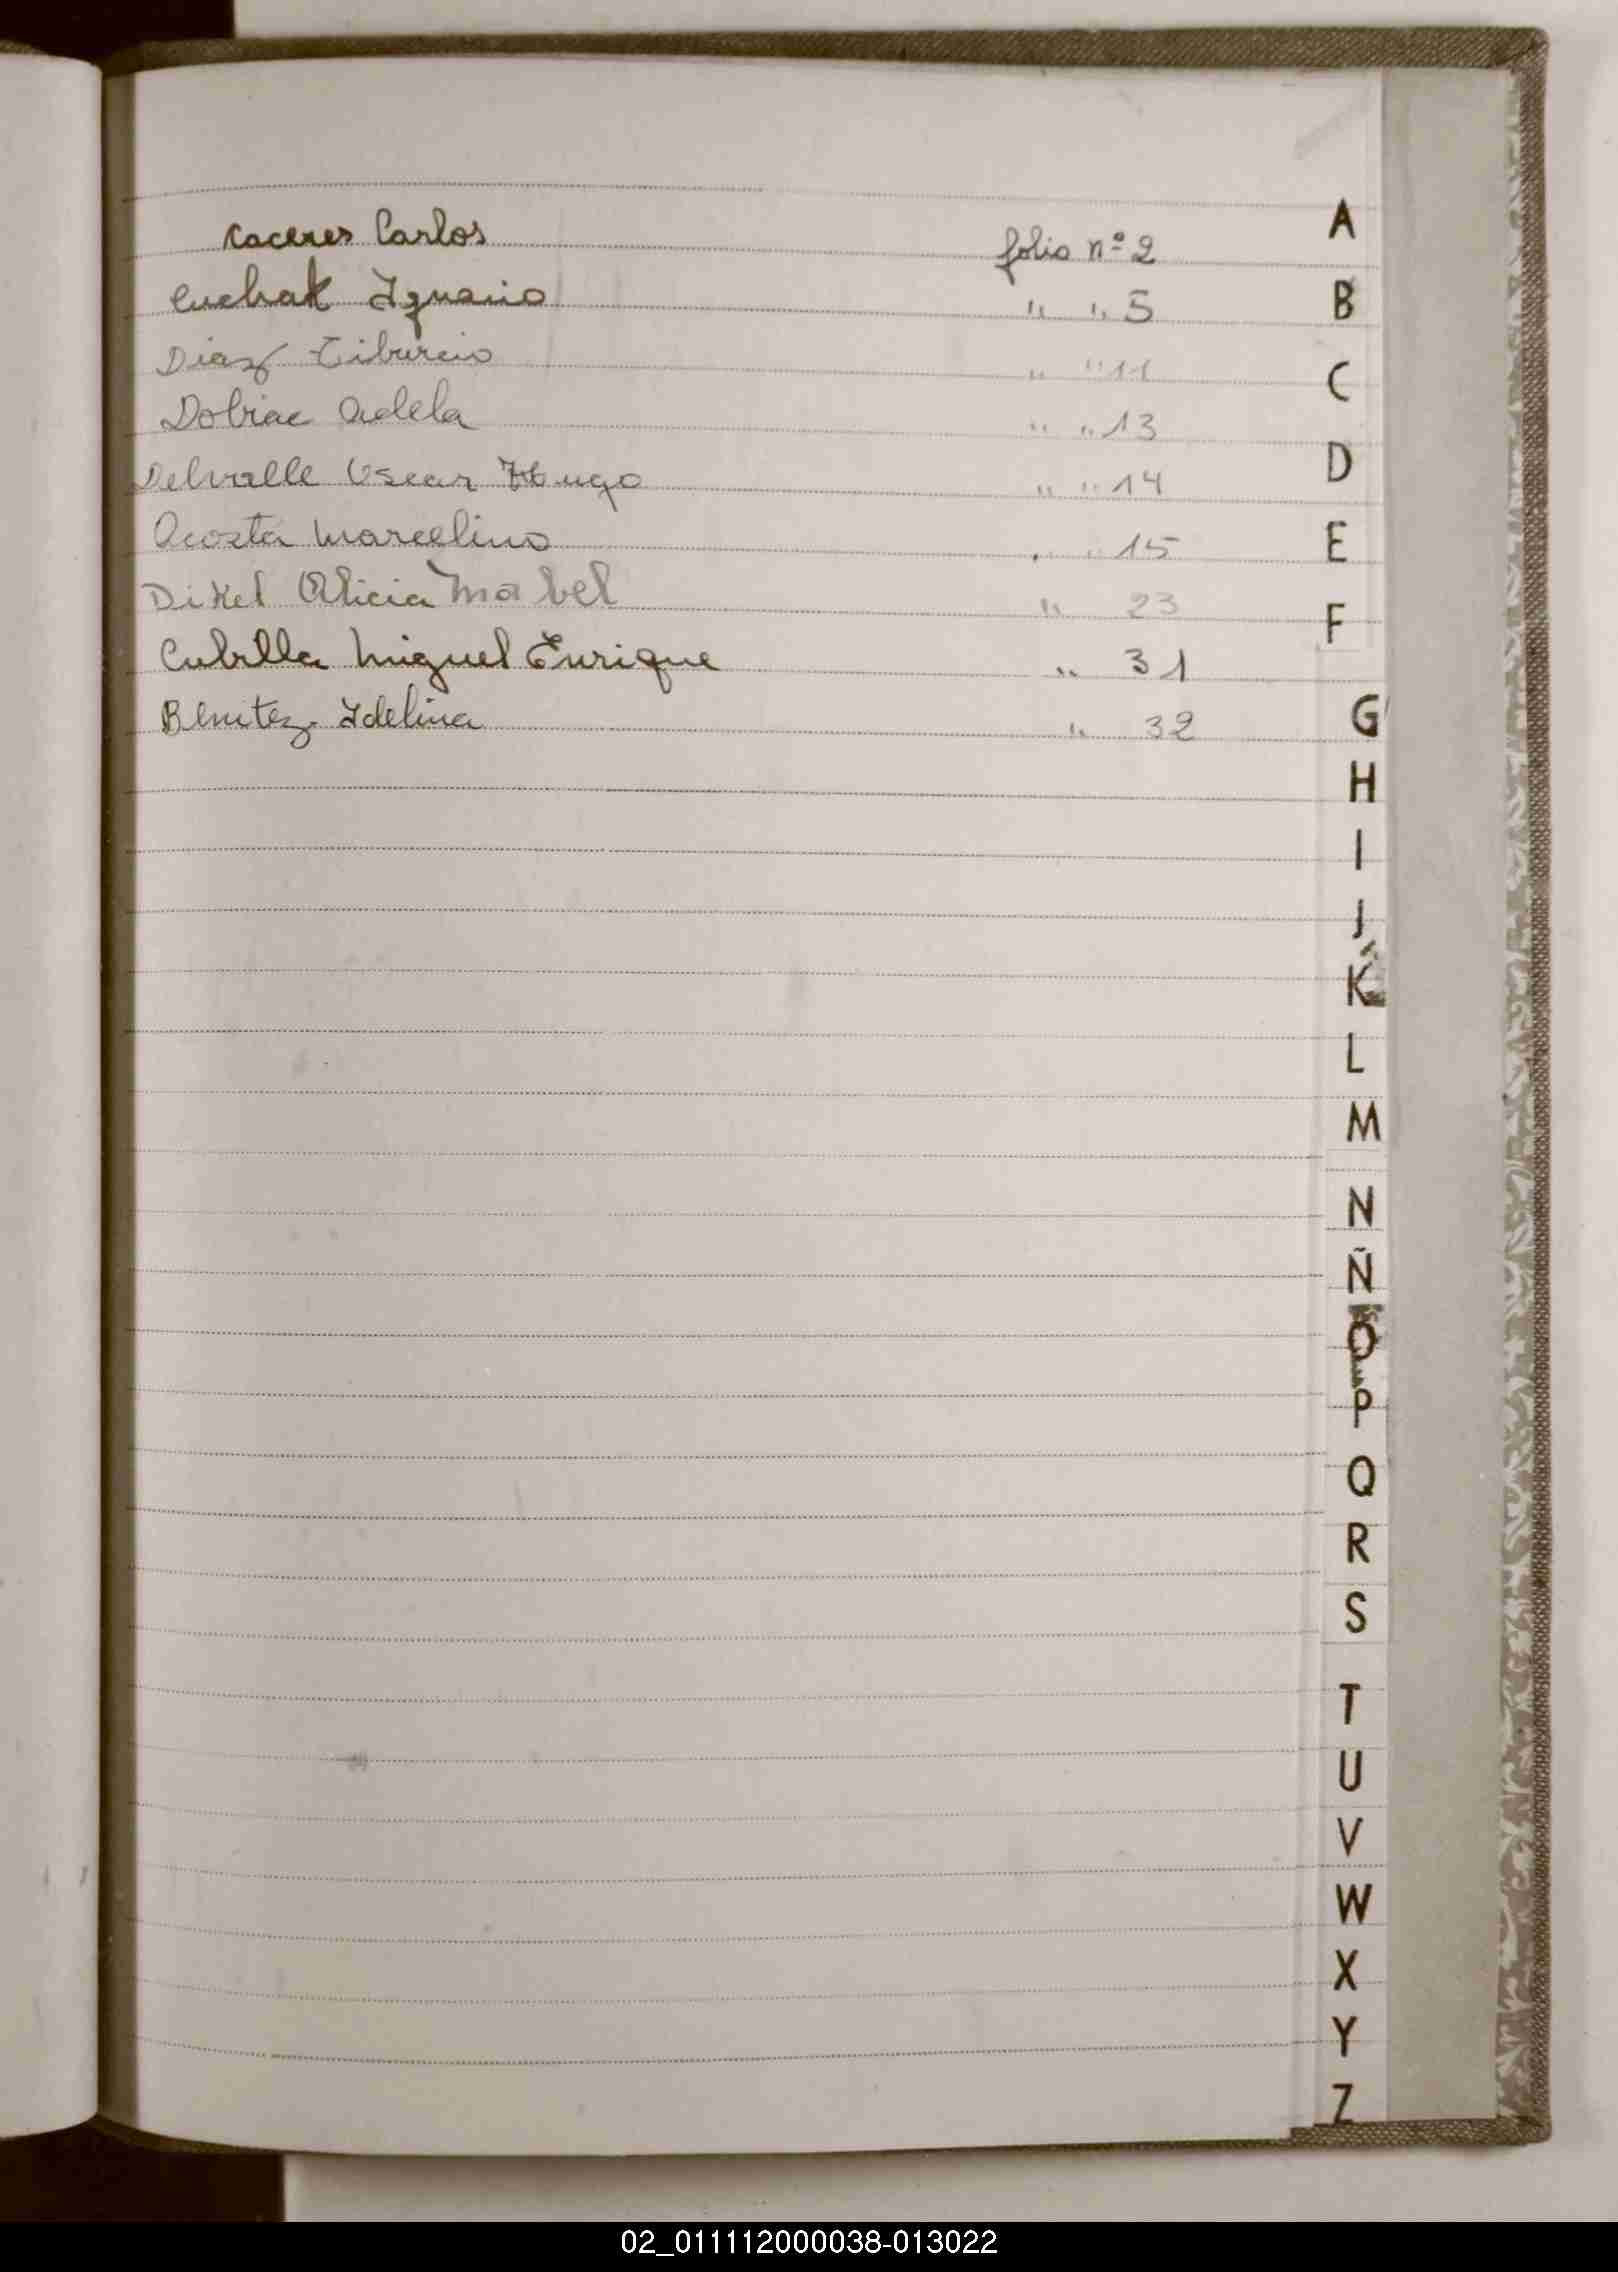 Caceres Carlos folio nº 2
Cuchak Ygnacio " " 5
Diaz Tiburcio " " 11
Dobrac Adela " " 13
Delvalle Oscar Hugo " " 14
Acosta Marcelino " " 15
Dikel Alicia Mabel " 23
Cubilla Miguel Enrique " 31
Benitez Idelina " 32
A
B
C
D
E
F
G
H
I
J
K
L
M
N
Ñ
O
P
Q
R
S
T
U
V
W
X
Y
Z
02_011112000038-013022